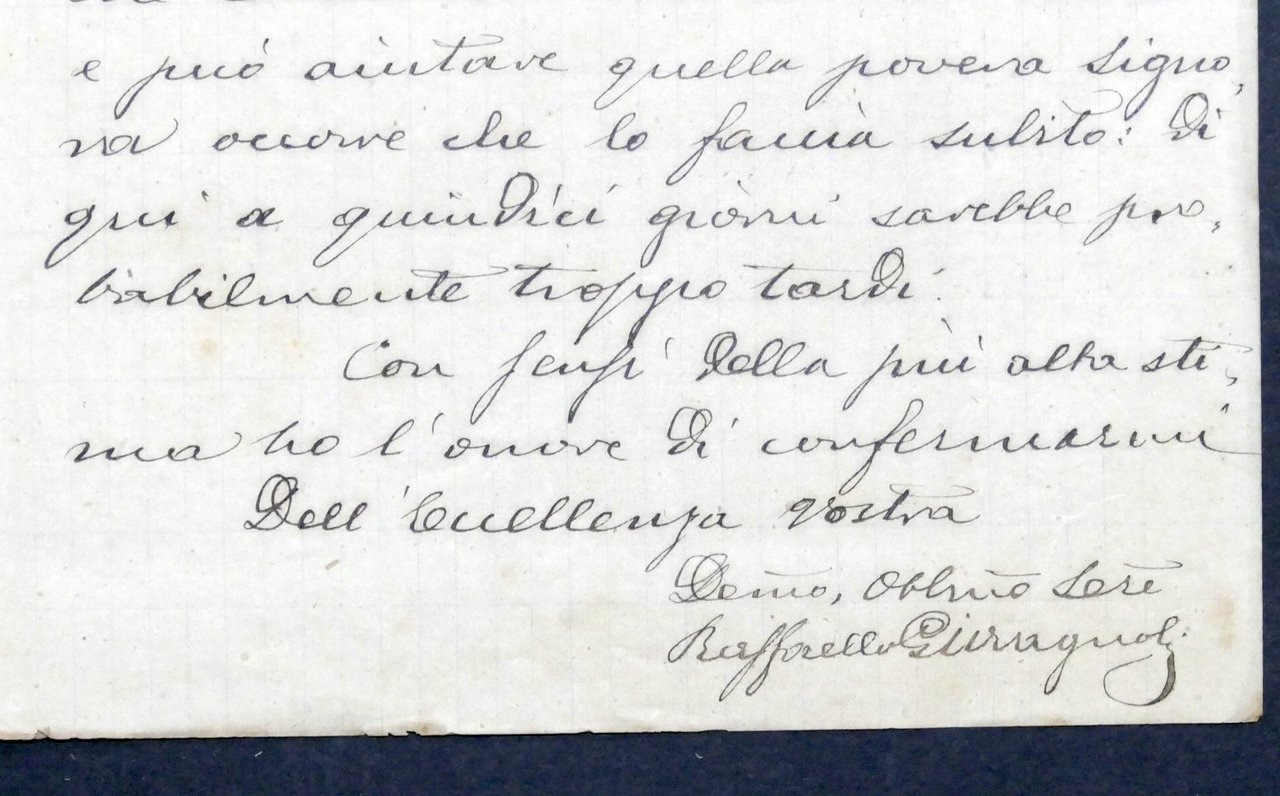 e può aiutare quella povera signo,
ra occorre che lo faccia subito: di
qui a quindici giorni sarebbe pro,
babilmente troppo tardi.
Con sensi della più alta sti,
ma ho l'onore di confermarmi
Dell'Eccellenza vostra
Demo, Obblmo Sere
Raffaello Giovagnoli